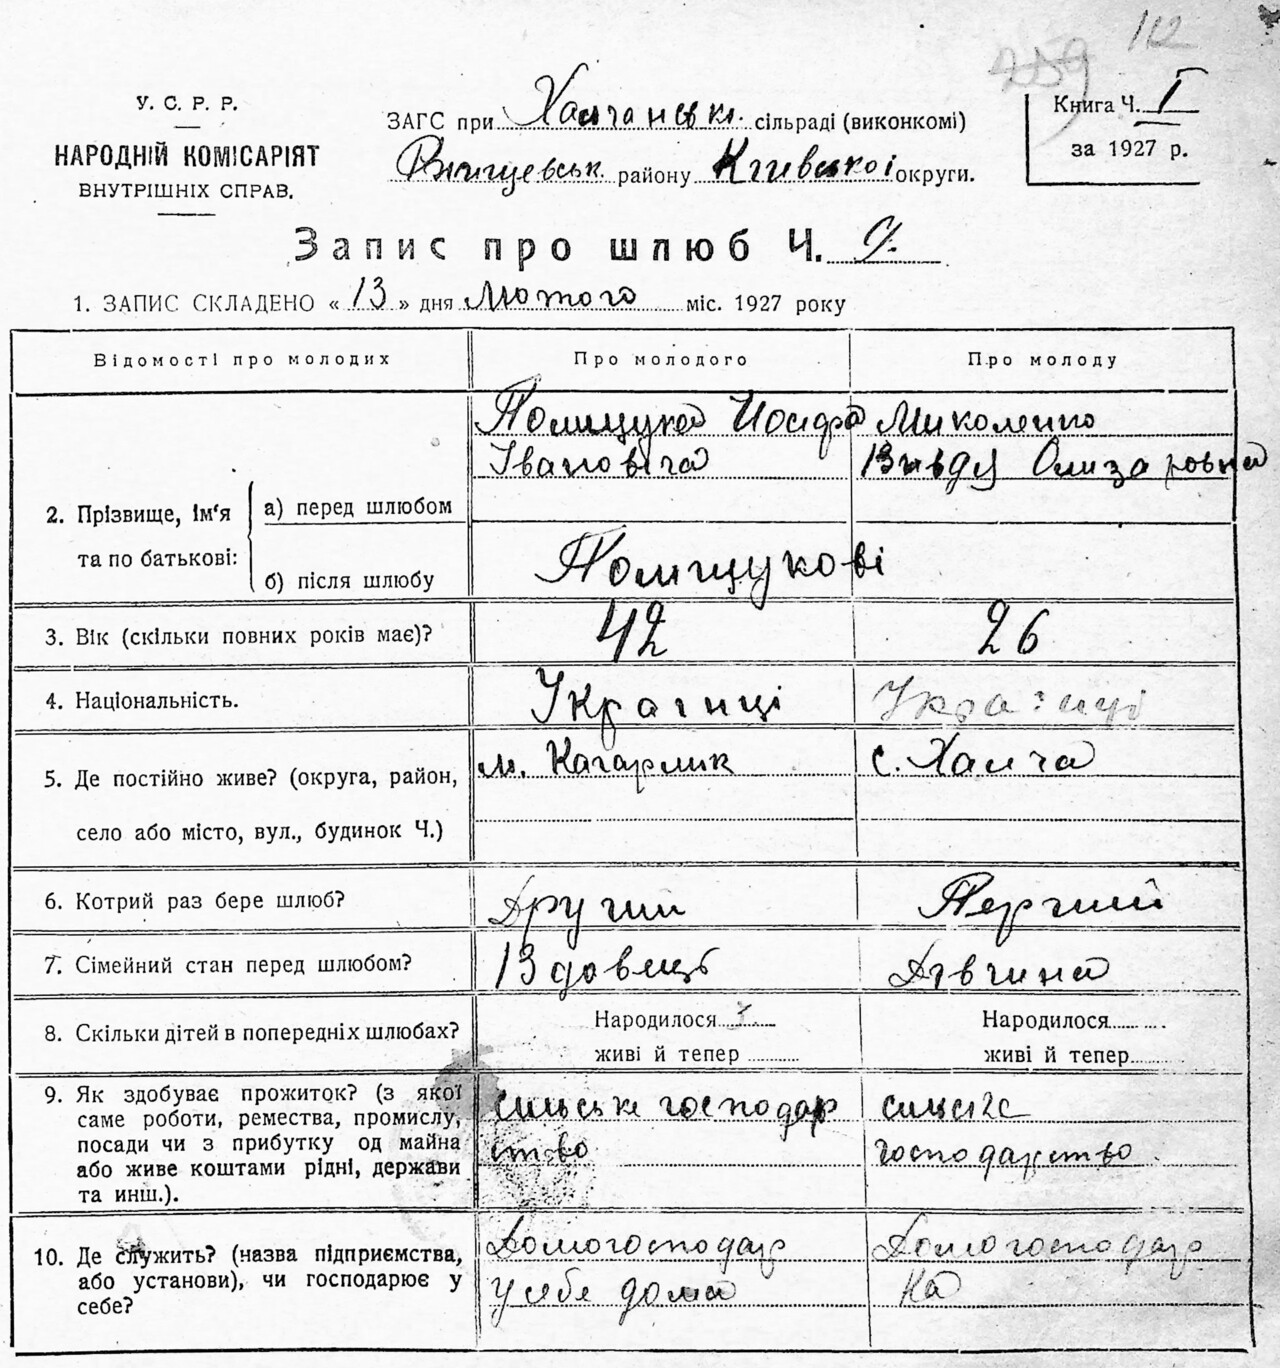 259 112
У. С. Р. Р.
НАРОДНІЙ КОМІСАРІЯТ
ВНУТРІШНІХ СПРАВ.
ЗАГС при Халчанські сільраді (виконкомі)
району Київської округи.
Книга Ч. I
за 1927 р.
Запис про шлюб Ч. 9.
1. ЗАПИС СКЛАДЕНО « 13 » дня Лютого міс. 1927 року
Відомості про молодих Про молодого Про молоду
2. Прізвище, ім'я та по батькові:
а) перед шлюбом
Полищука Иосифа
Івановіча
Миколенко
Олизаровна
б) після шлюбу
Поліщукові
3. Вік (скільки повних років має)? 42 26
4. Національність. Украінці Украінці
5. Де постійно живе? (округа, район,
село або місто, вул., будинок Ч.)
м. Кагарлик с. Халча
6. Котрий раз бере шлюб? Другий Перчий
7. Сімейний стан перед шлюбом? Вдовець Дівчина
8. Скільки дітей в попередніх шлюбах?
Народилося
живі й тепер
Народилося
живі й тепер
9. Як здобуває прожиток? (з якої
саме роботи, ремества, промислу,
посади чи з прибутку од майна
або живе коштами рідні, держави
та инш.).
сильське господар
ство
господарство
10. Де служить? (назва підприємства,
або установи), чи господарює у
себе?
Домогосподар
у себе дома
Домогосподар
ка